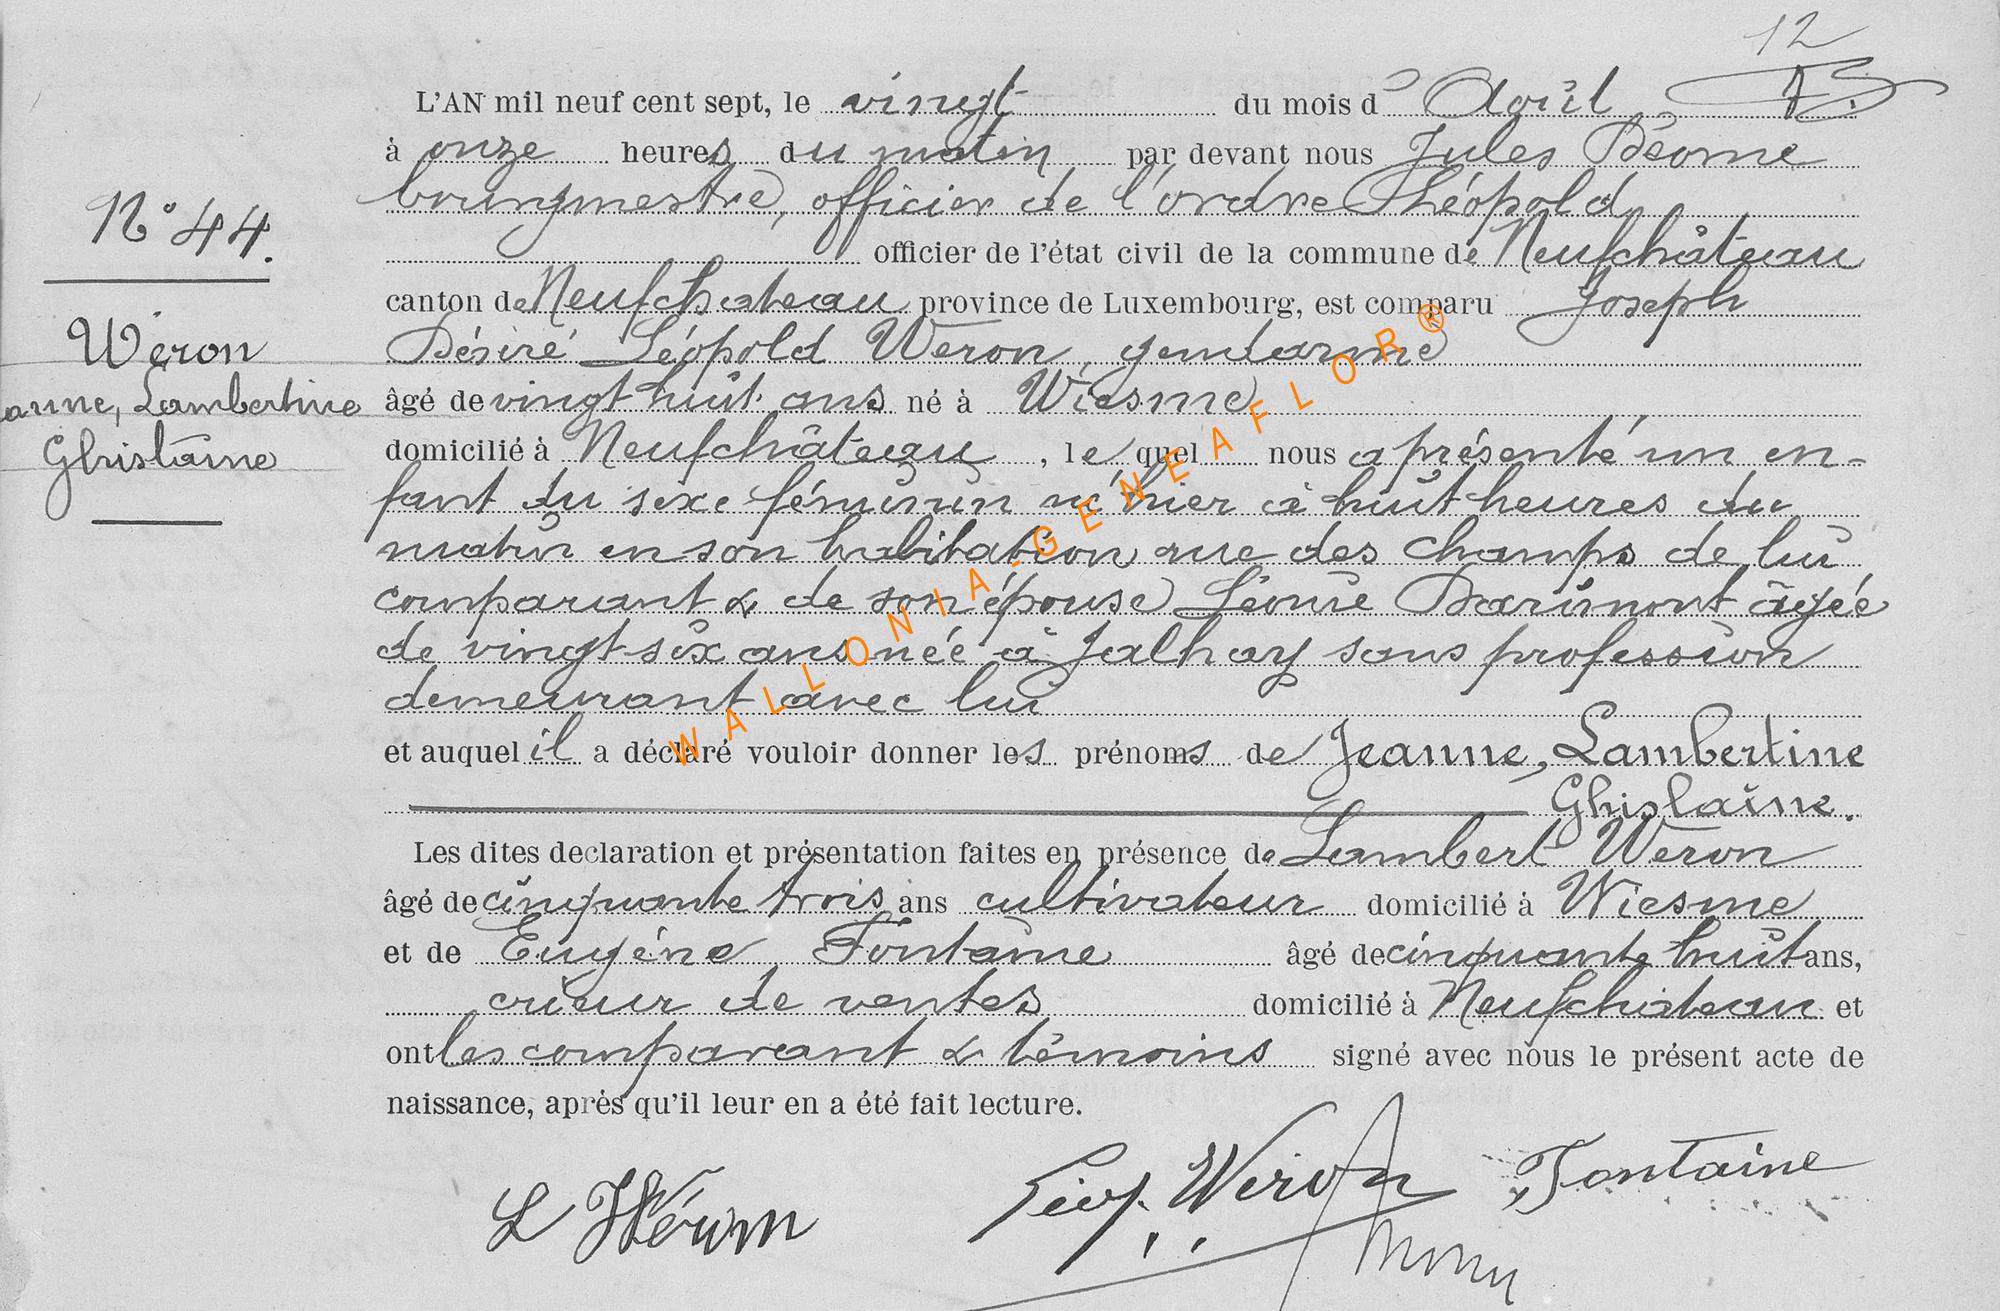 12
L'AN mil neuf cent sept, le vingt du mois d'Août
à onze heures du matin par devant nous Jules Béorne
bourgmestre, officier de l'ordre Léopold
officier de l'état civil de la commune de Neufchâteau
canton de Neufchateau province de Luxembourg, est comparu Joseph
Désiré Léopold Weron, gendarme
âgé de vingt huit ans né à Wiesme
domicilié à Neufchâteau, le quel nous a présenté un en-
fant du sexe féminin né hier à huit heures du
matin en son habitation rue des Champs de lui
comparant & de son épouse Léonie Darimont âgée
de vingt-six ans née à Jalhay sans profession
demeurant avec lui
et auquel il a déclaré vouloir donner les prénoms de Jeanne, Lambertine
Ghislaine.
Les dites declaration et présentation faites en présence de Lambert Weron
âgé de cinquante trois ans cultivateur domicilié à Wiesme
et de Eugéne Fontaine âgé de cinquante huit ans,
crieur de ventes domicilié à Neufchateau et
ont les comparant & témoins signé avec nous le présent acte de
naissance, aprés qu'il leur en a été fait lecture.
L Wéron
Léop. Weron
Fontaine
N° 44.
Weron
anne, Lambertine
Ghislaine
WALLONIA-GENEAFLOR®